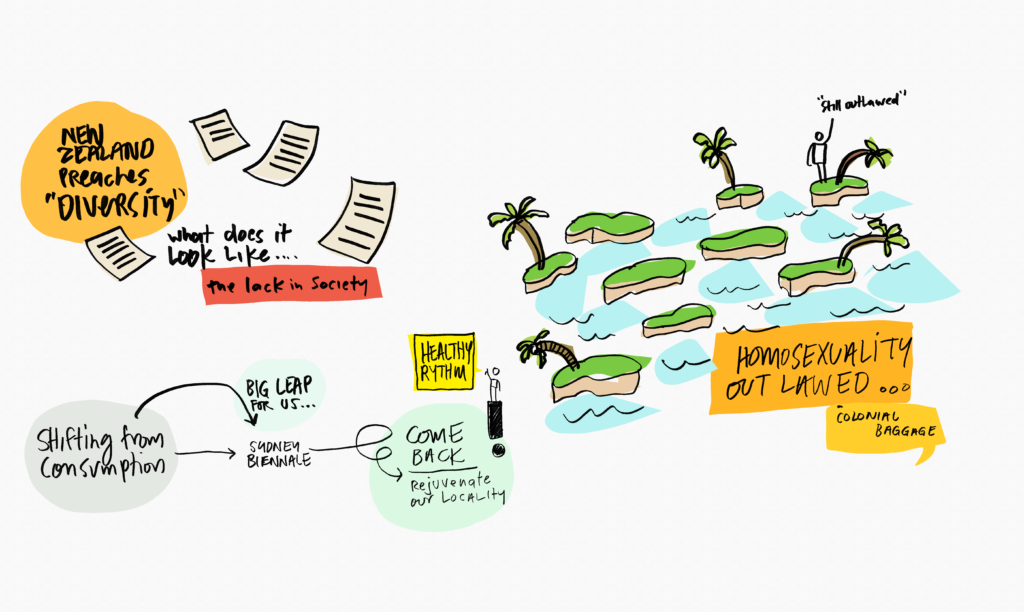 NEW
ZEALAND
Preaches
"DIVERSITY"
what does it
LOOK LiKe....
the lack in Society
"Still outlawed"
HOMOSEXUALITY
OUT LAWED...
COLONIAL
BAGGAGE
HEALTHY
RYTHM
BIG LEAP
FOR US...
SHifting from
Consumption
SYDNEY
BIENNALE
COME
BACK
Rejuvenate
our LOCALITY